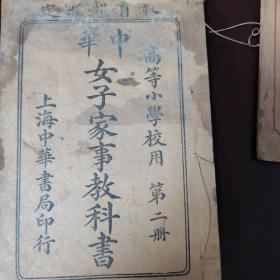 中華
高等小學校用 第二册
女子家事教科書
上海中華書局印行